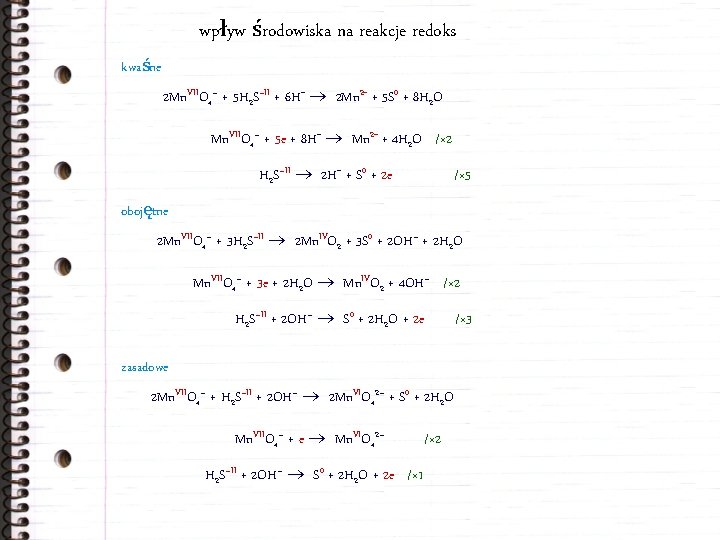 wpływ środowiska na reakcje redoks
kwaśne
2Mn^VII O₄⁻ + 5H₂S^–II + 6H⁻ → 2Mn²⁻ + 5S⁰ + 8H₂O
Mn^VII O₄⁻ + 5e + 8H⁻ → Mn²⁻ + 4H₂O /×2
H₂S^–II → 2H⁻ + S⁰ + 2e /×5
obojętne
2Mn^VII O₄⁻ + 3H₂S^–II → 2Mn^IV O₂ + 3S⁰ + 2OH⁻ + 2H₂O
Mn^VII O₄⁻ + 3e + 2H₂O → Mn^IV O₂ + 4OH⁻ /×2
H₂S^–II + 2OH⁻ → S⁰ + 2H₂O + 2e /×3
zasadowe
2Mn^VII O₄⁻ + H₂S^–II + 2OH⁻ → 2Mn^VI O₄²⁻ + S⁰ + 2H₂O
Mn^VII O₄⁻ + e → Mn^VI O₄²⁻ /×2
H₂S^–II + 2OH⁻ → S⁰ + 2H₂O + 2e /×1